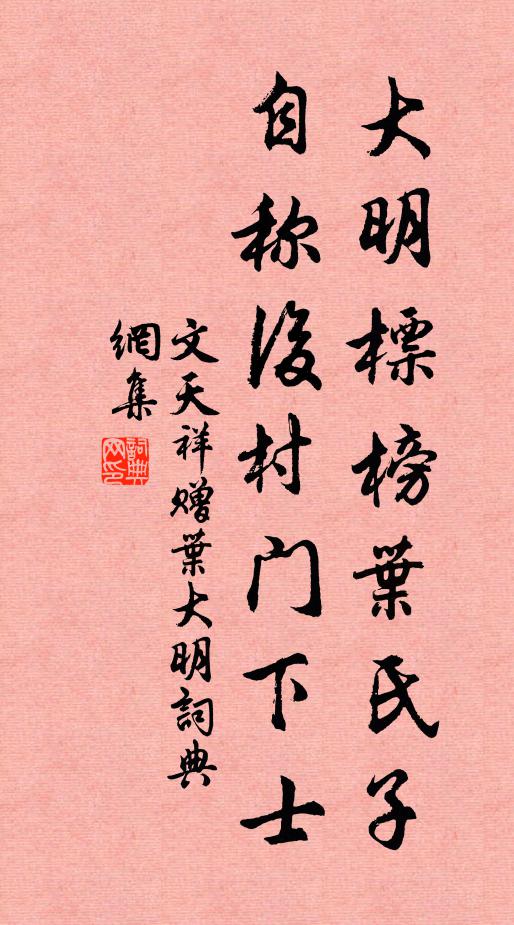 大明標榜葉氏子
自称後村门下士
文天祥赠葉大明詞典
網集
詞典网印